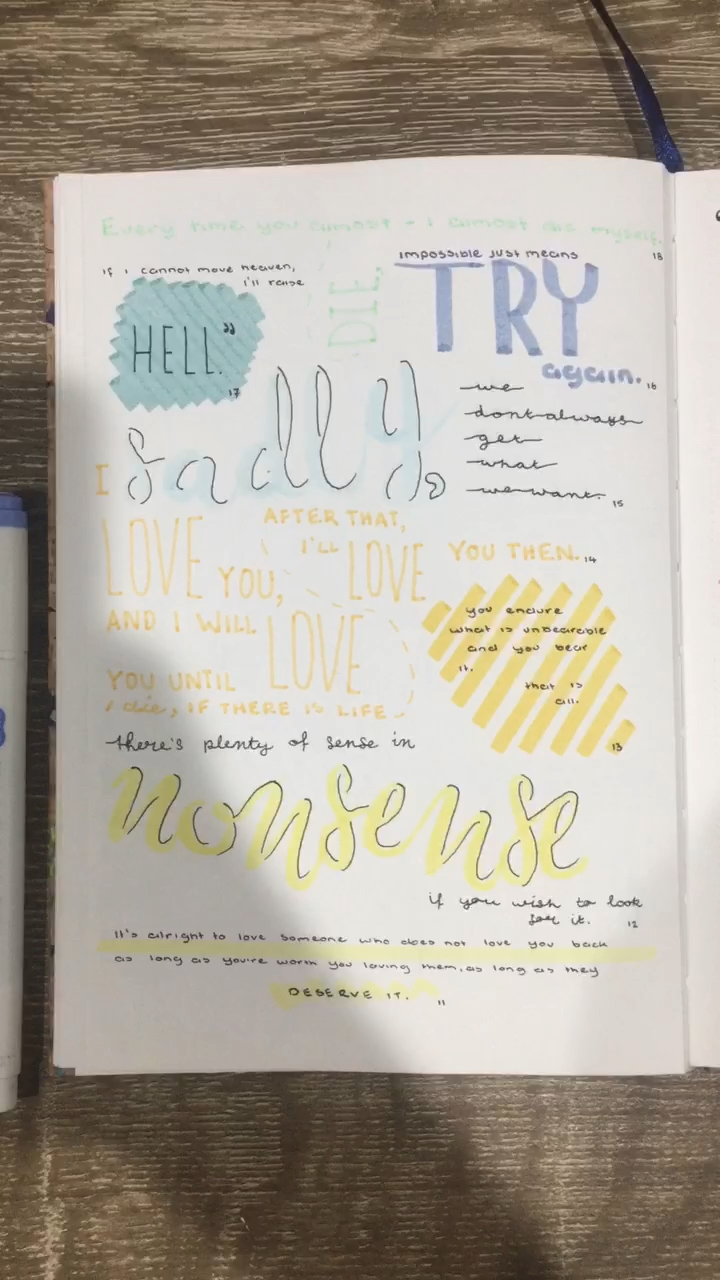 Every time you almost - I almost die myself.
DIE,
18
If I cannot move heaven,
I'll raise
HELL."
17
Impossible just means
TRY
again.
16
sadly,
we
dont always
get
what
we want.
15
I
LOVE YOU,
AFTER THAT,
I'LL LOVE YOU THEN.
14
AND I WILL LOVE
YOU UNTIL
I die, IF THERE IS LIFE
you endure
what is unbearable
and you bear
it.
that is
all.
13
there's plenty of sense in
nonsense
if you wish to look
for it.
12
It's alright to love someone who does not love you back
as long as you're worth you loving them, as long as they
DESERVE IT.
11